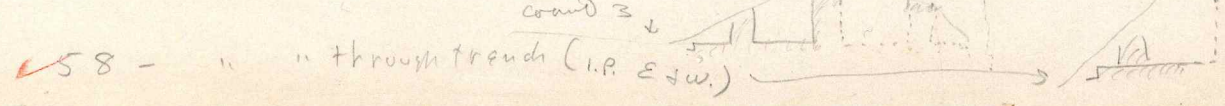 and 3
58 - " " through trench (I.P. E & W.)